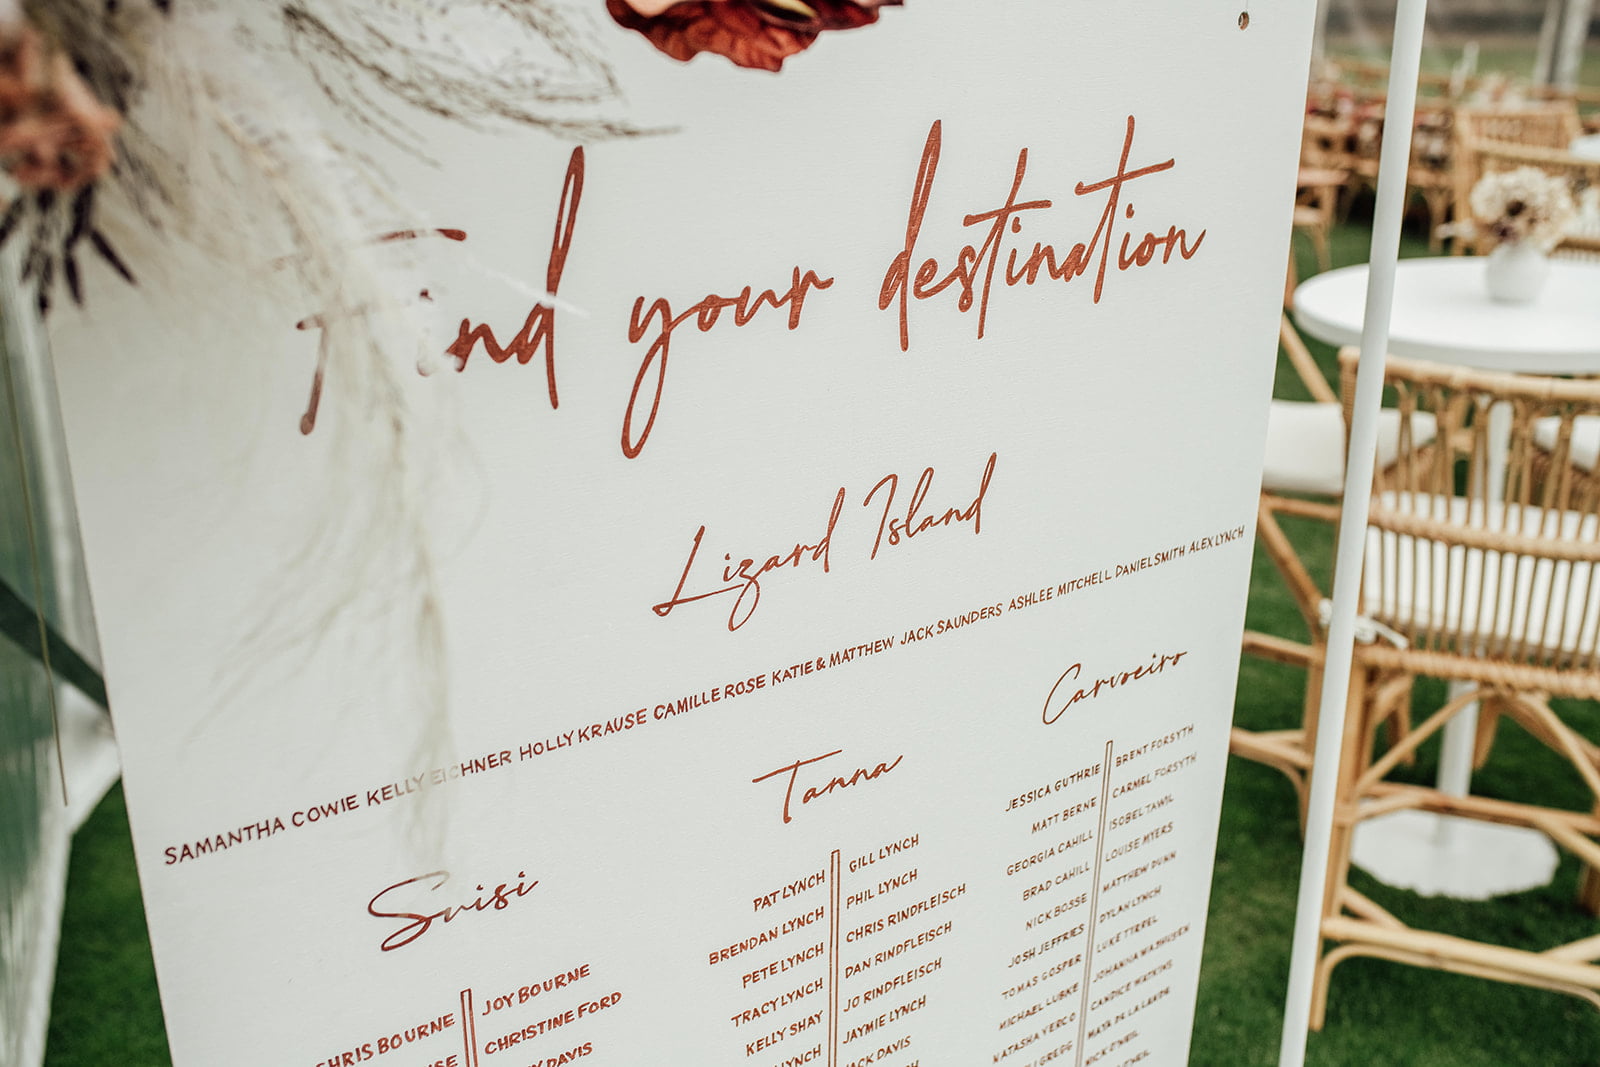 Find your destination
Lizard Island
SAMANTHA COWIE KELLY EICHNER HOLLY KRAUSE CAMILLE ROSE KATIE & MATTHEW JACK SAUNDERS ASHLEE MITCHELL DANIEL SMITH ALEX LYNCH
Suisi
CHRIS BOURNE JOY BOURNE
CHRISTINE FORD
DAVIS
Tanna
PAT LYNCH GILL LYNCH
BRENDAN LYNCH PHIL LYNCH
PETE LYNCH CHRIS RINDFLEISCH
TRACY LYNCH DAN RINDFLEISCH
KELLY SHAY JO RINDFLEISCH
LYNCH JAYMIE LYNCH
JACK DAVIS
Carvoeiro
JESSICA GUTHRIE BRENT FORSYTH
MATT BERNE CARMEL FORSYTH
GEORGIA CAHILL ISOBEL TAWIL
BRAD CAHILL LOUISE MYERS
NICK BOSSE MATTHEW DUNN
JOSH JEFFRIES DYLAN LYNCH
TOMAS GOSPER LUKE TYRREL
MICHAEL LUBKE JOHANNA
NATASHA VERCO CANDICE WATKINS
GREGG MAYA DE LA LANDE
NICK O'NEIL
O'NEIL